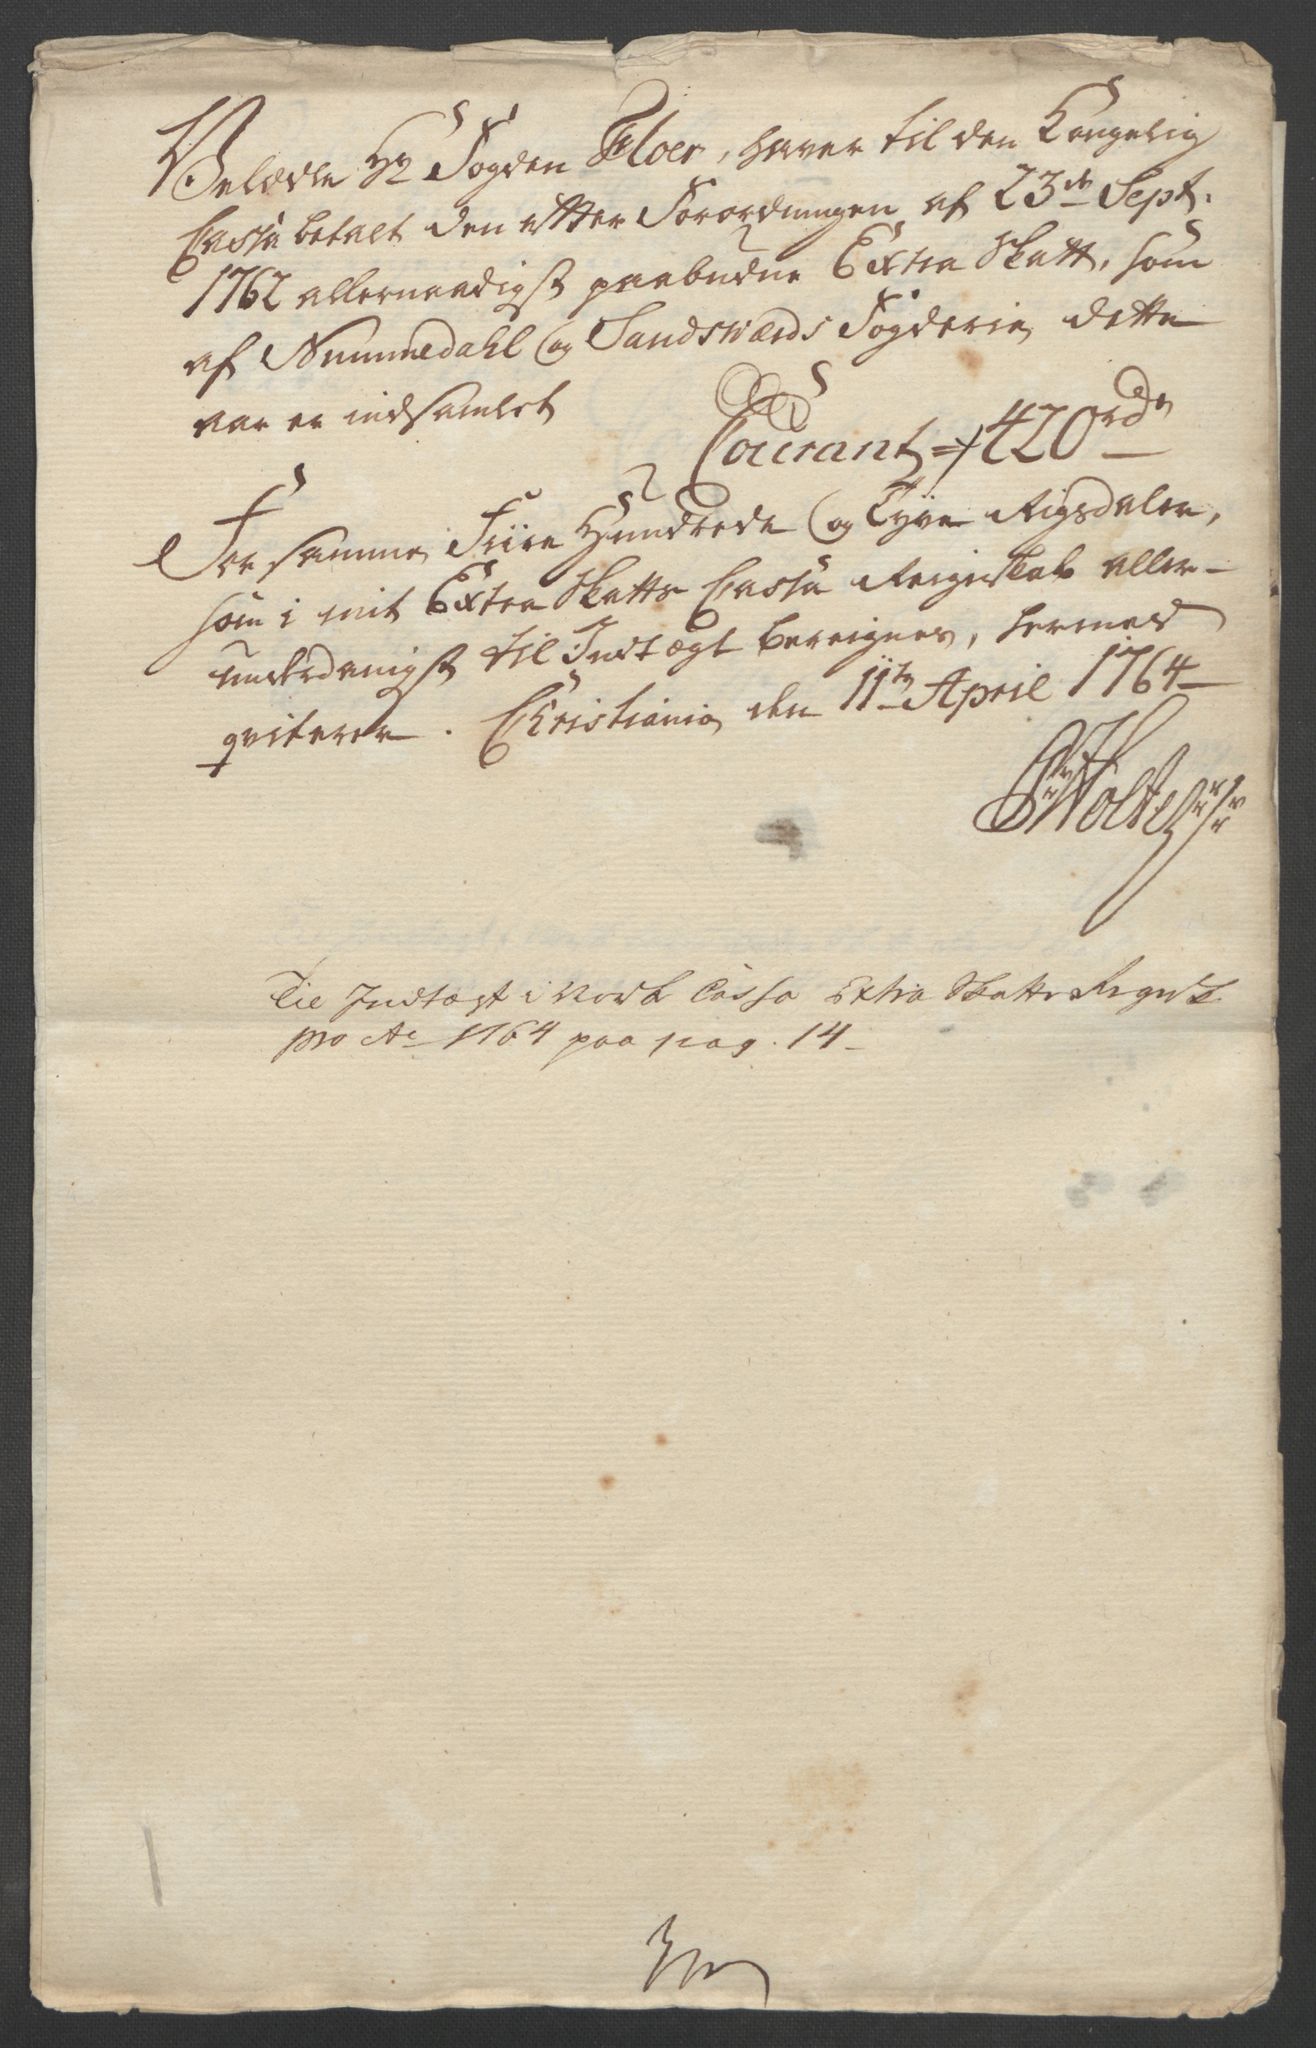 Velædle Hr Fogden Floer, haver til den Kongelig
Cassa betalt den efter Forordningen af 23de Sept.
1762 allernaadigst paabudne Extra Skatt, som
af Nummedahl og Sandsværds Fogderie, dette
aar er indsamlet
Courant 420 rd
For samme Fiire Hundrede og Tyve Rigsdaler,
som i mit Extra Skatts Cassa Reignskab aller-
underdanigst til Indtægt bereignes, hermed
qviterer. Christiania den 11te April 1764
Holter
Til Indtægt i Norsk Cassa Extra Skatte Regnsk
pro Ao 1764 paa pag. 14